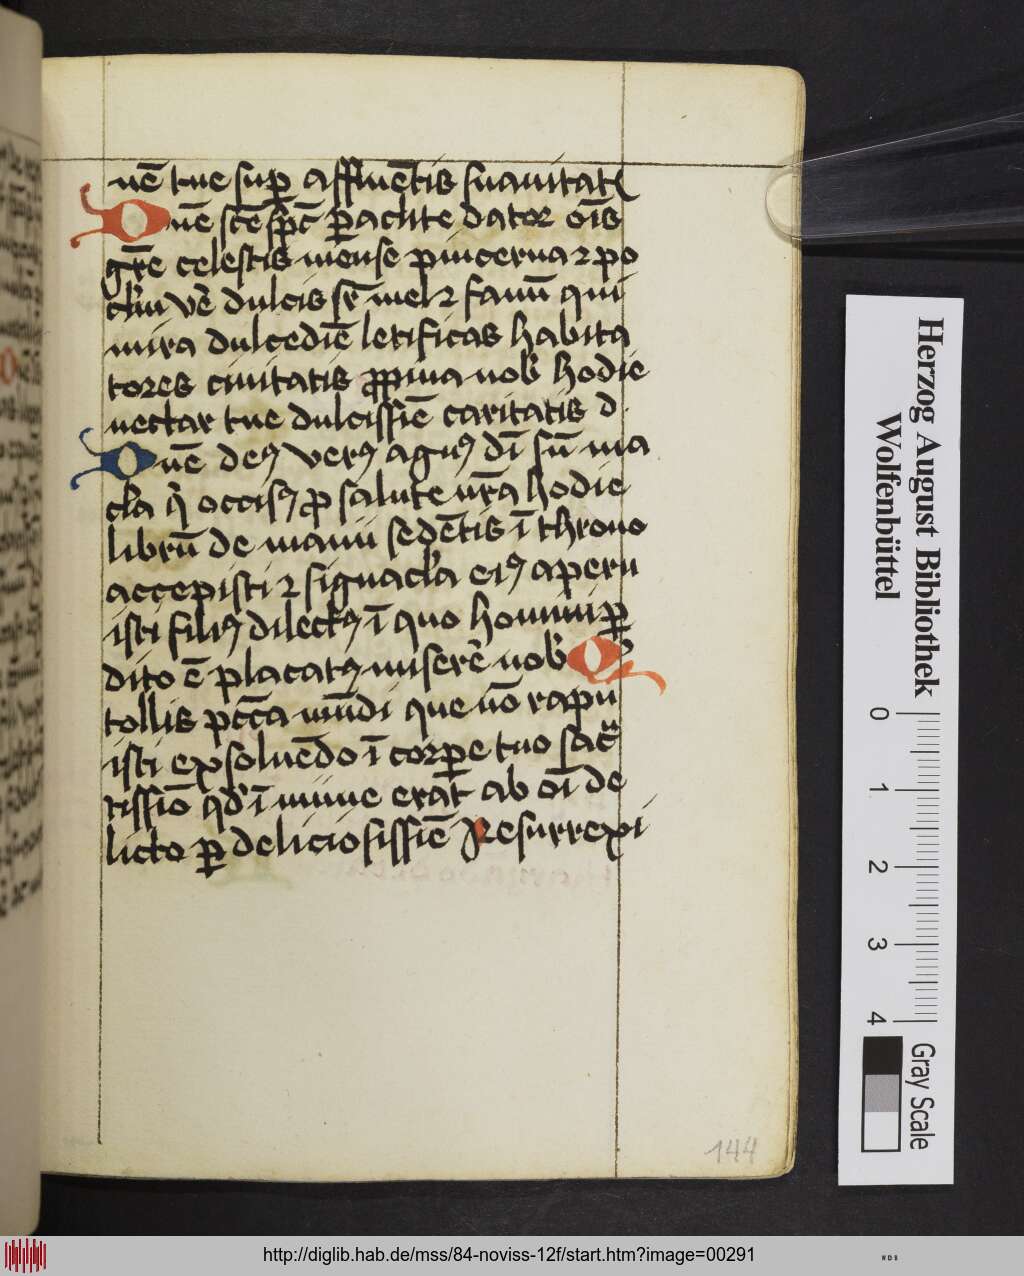 nē tue suꝑ affluētis suauitatꝭ
Dn̄e scē sp̄c ꝑaclite dator oīs
gr̄e celestis mense pincerna ⁊ po
cl̓m vē dulcis sꝛ̄ mel ⁊ fauū qui
mira dulcediē letificas habita
tores ciuitatis ꝓpina nob̓ hodie
nectar tue dulcissīe caritatis d
Dn̄e deꝰ verꝰ agnꝰ dī sū ma
cl̓a q̇ occisꝰ ꝓ salute nr̄a hodie
librū de manu sedētis ī throno
accepisti ⁊ signacl̓a eiꝰ aperu
isti filiꝰ dilectꝰ ī quo homini ꝑ
dito ē placatꝰ miserē nob̓ Qͥ
tollis pcc̄a mūdi que nō rapu
isti exsoluēdo ī corꝑe tuo sac̄
tissīo qd̓ ī mune erat̄ ab oī de
licto ꝑ deliciosissīe Resurrexi
144
Herzog August Bibliothek
Wolfenbüttel
0 1 2 3 4
Gray Scale
http://diglib.hab.de/mss/84-noviss-12f/start.htm?image=00291
WDB